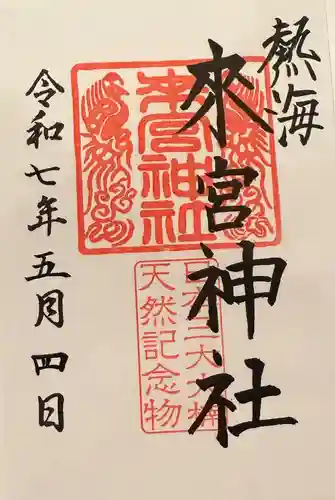 熱海
來宮神社
來宮神社
日本三大大楠
天然記念物
令和七年五月四日